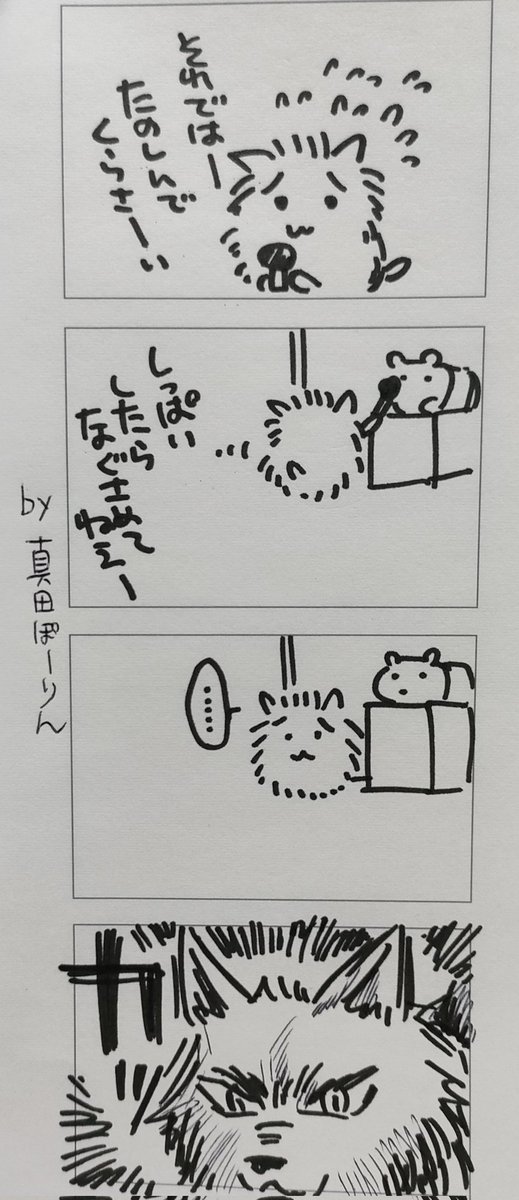 それではー
たのしんで
くらさーい
しっぱい
したら
なぐさめて
ねえー
……
ガ
by 真田ぽーりん